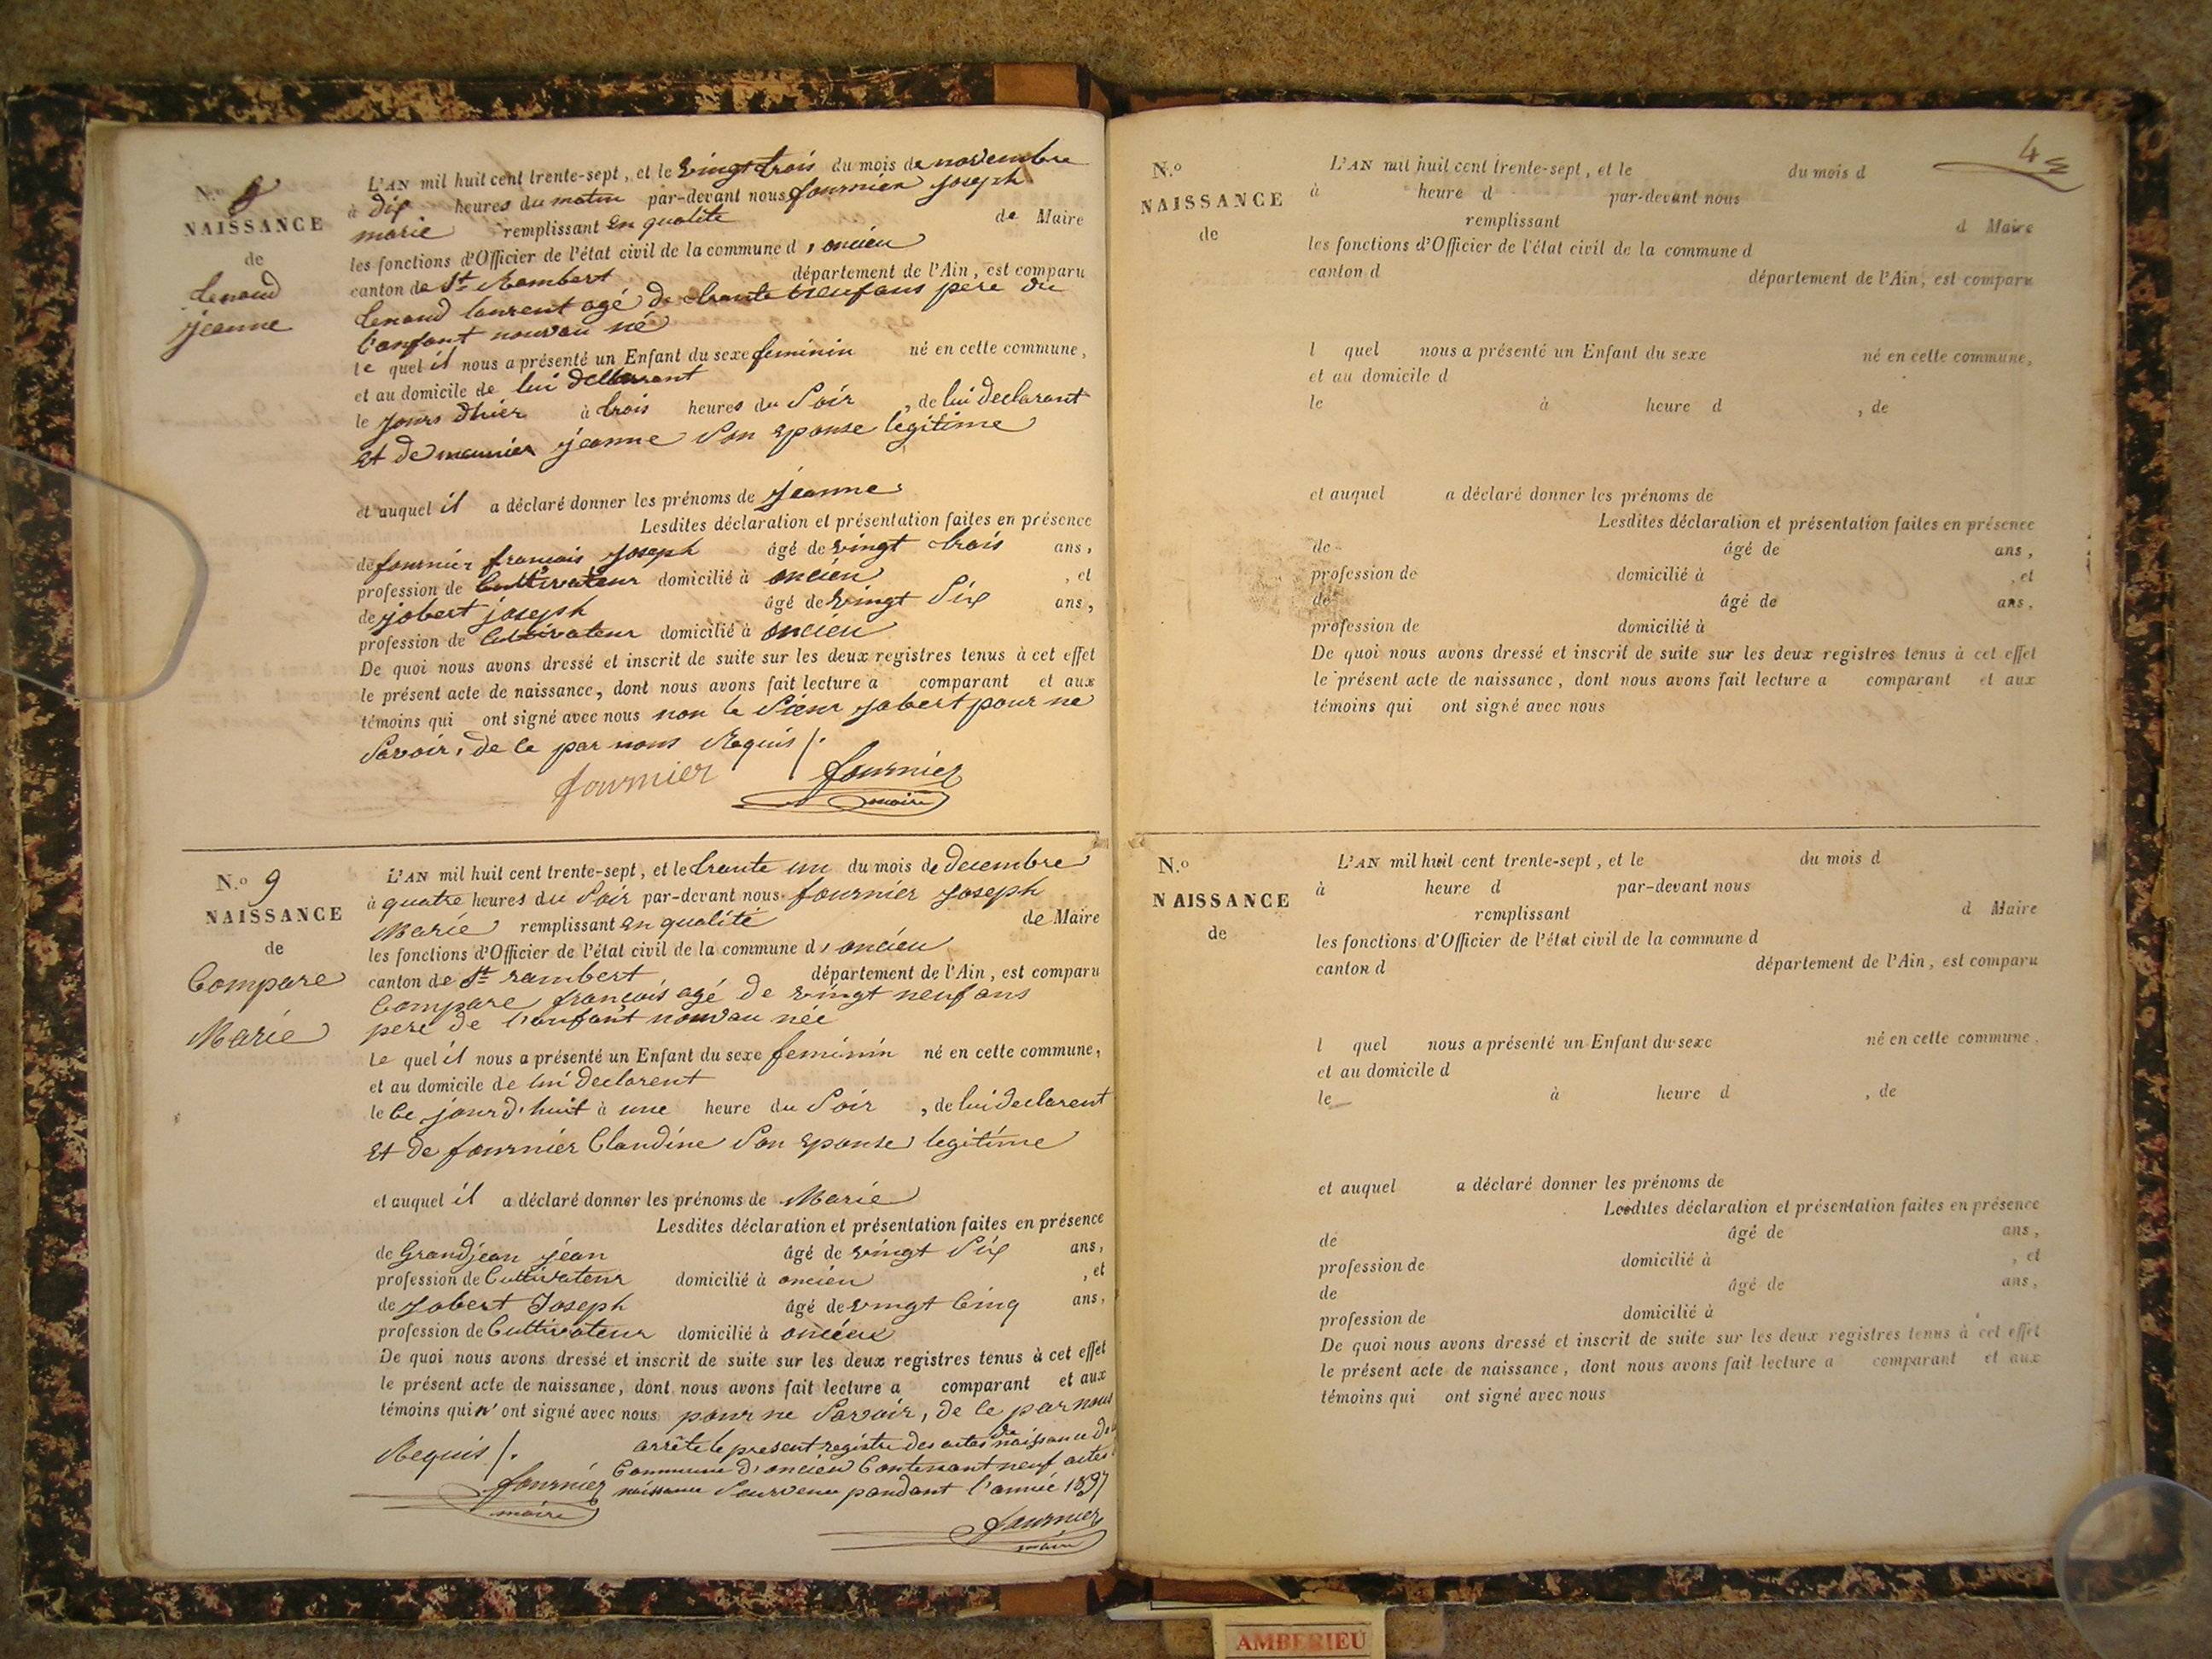 N.o 8
NAISSANCE
de
Lenoud
jeanne
L'AN mil huit cent trente-sept, et le vingt trois du mois de novembre
à dix heures du matin par-devant nous fournier joseph
marie remplissant en qualité de Maire
les fonctions d'Officier de l'état civil de la commune d'oncieu
canton de St Rambert département de l'Ain, est comparu
Lenoud laurent agé de trante neuf ans pere du
l'anfant nouvau né
le quel il nous a présenté un Enfant du sexe feminin né en cette commune,
et au domicile de lui declarant
le jours dhier à trois heures du Soir, de lui declarant
et de meunier jeanne Son epouse legitime
et auquel il a déclaré donner les prénoms de jeanne
Lesdites déclaration et présentation faites en présence
de fournier francois joseph âgé de vingt trois ans,
profession de Cultivateur domicilié à oncieu, et
de jobert joseph âgé de vingt Six ans,
profession de Cultivateur domicilié à oncieu
De quoi nous avons dressé et inscrit de suite sur les deux registres tenus à cet effet
le présent acte de naissance, dont nous avons fait lecture a comparant et aux
témoins qui ont signé avec nous non le Sieur jobert pour ne
Savoir, de ce par nous Requis /.
fournier fournier
maire
N.o 9
NAISSANCE
de
Compare
Marie
L'AN mil huit cent trente-sept, et le trente un du mois de decembre
à quatre heures du Soir par-devant nous fournier joseph
Marie remplissant en qualité de Maire
les fonctions d'Officier de l'état civil de la commune d'oncieu
canton de St rambert département de l'Ain, est comparu
Compare francois agé de vingt neuf ans
pere de l'anfant nouvau née
le quel il nous a présenté un Enfant du sexe feminin né en cette commune,
et au domicile de lui declarent
le Ce jourd'huit à une heure du Soir, de lui declarent
et de fournier Claudine Son epouse legitime
et auquel il a déclaré donner les prénoms de Marie
Lesdites déclaration et présentation faites en présence
de Grandjean jean âgé de vingt Six ans,
profession de Cultivateur domicilié à oncieu, et
de jobert Joseph âgé de vingt Cinq ans,
profession de Cultivateur domicilié à oncieu
De quoi nous avons dressé et inscrit de suite sur les deux registres tenus à cet effet
le présent acte de naissance, dont nous avons fait lecture a comparant et aux
témoins qui n'ont signé avec nous pour ne Savoir, de ce par nous
Requis /.
arrête le present registre des actes de naissance de
Commune d'oncieu Contenant neuf actes
naissance Survenu pandant l'année 1837
fournier
maire
fournier
maire
4
N.o
NAISSANCE
de
L'AN mil huit cent trente-sept, et le du mois d
à heure d par-devant nous
remplissant d Maire
les fonctions d'Officier de l'état civil de la commune d
canton d département de l'Ain, est comparu
l quel nous a présenté un Enfant du sexe né en cette commune,
et au domicile d
le à heure d , de
et auquel a déclaré donner les prénoms de
Lesdites déclaration et présentation faites en présence
de âgé de ans,
profession de domicilié à , et
de âgé de ans,
profession de domicilié à
De quoi nous avons dressé et inscrit de suite sur les deux registres tenus à cet effet
le présent acte de naissance, dont nous avons fait lecture a comparant et aux
témoins qui ont signé avec nous
N.o
NAISSANCE
de
L'AN mil huit cent trente-sept, et le du mois d
à heure d par-devant nous
remplissant d Maire
les fonctions d'Officier de l'état civil de la commune d
canton d département de l'Ain, est comparu
l quel nous a présenté un Enfant du sexe né en cette commune,
et au domicile d
le à heure d , de
et auquel a déclaré donner les prénoms de
Lesdites déclaration et présentation faites en présence
de âgé de ans,
profession de domicilié à , et
de âgé de ans,
profession de domicilié à
De quoi nous avons dressé et inscrit de suite sur les deux registres tenus à cet effet
le présent acte de naissance, dont nous avons fait lecture a comparant et aux
témoins qui ont signé avec nous
AMBERIEU